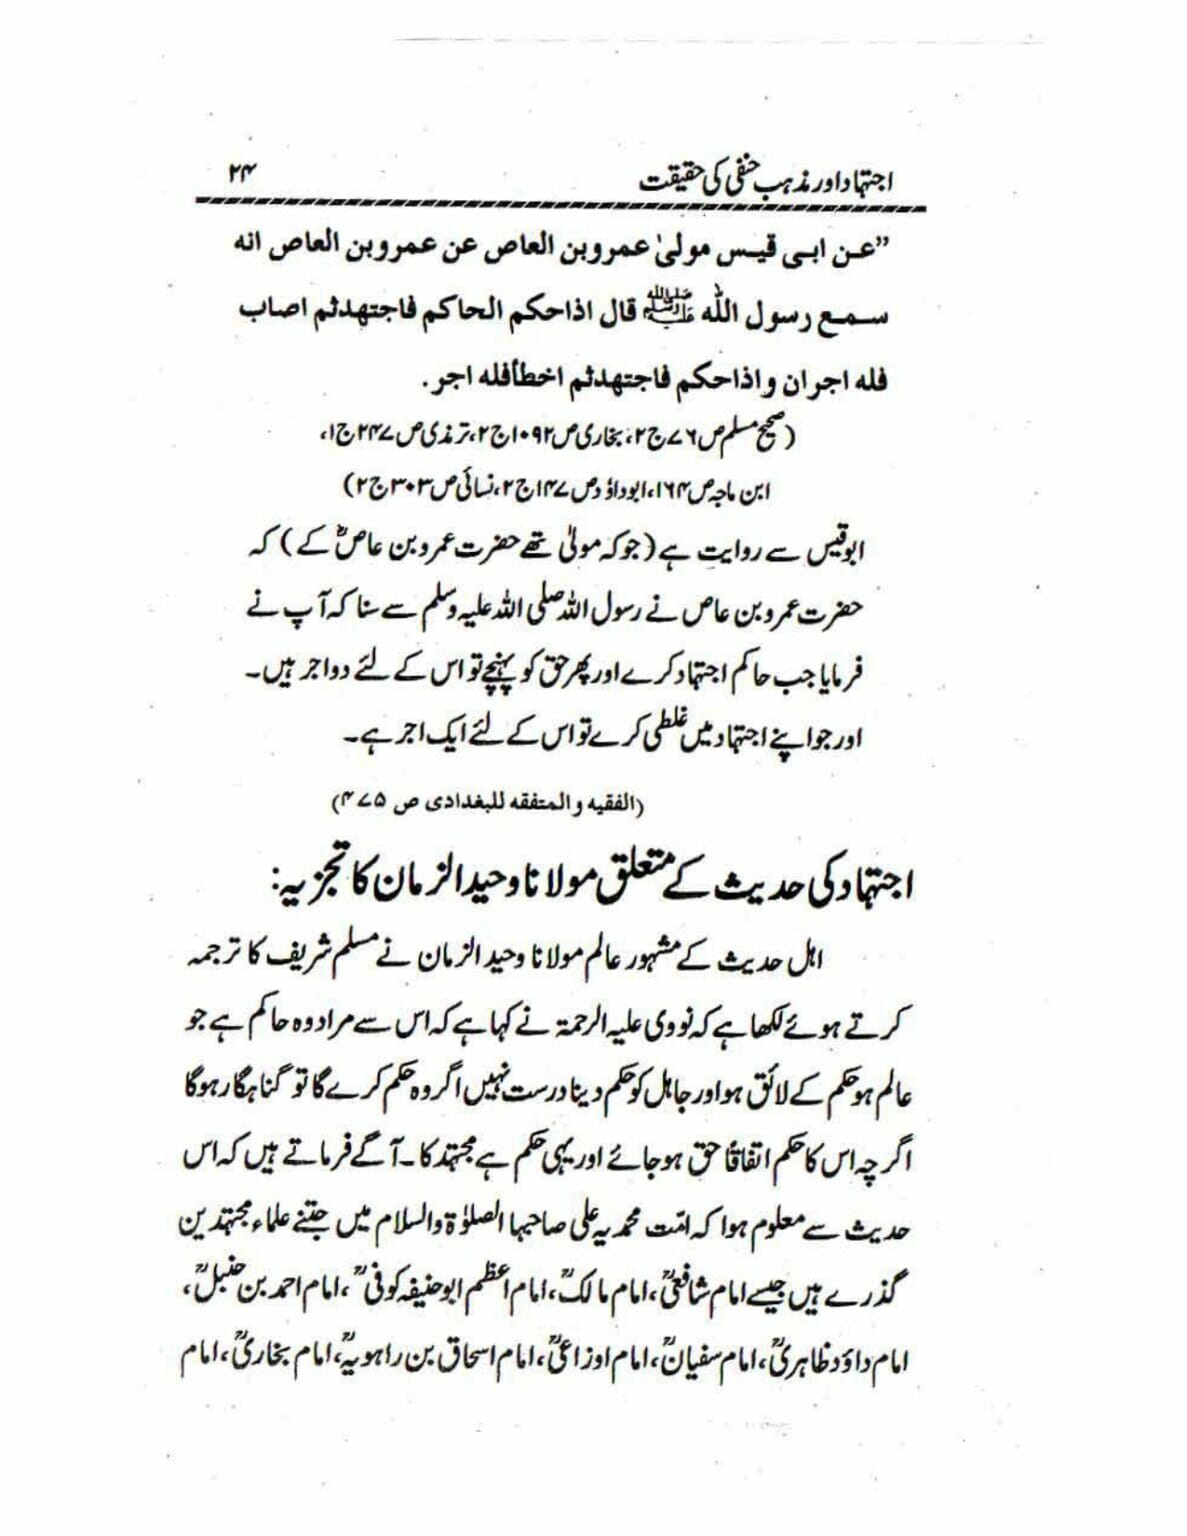 اجتہاد اور مذہب حنفی کی حقیقت ۲۴
”عن ابی قیس مولیٰ عمروبن العاص عن عمروبن العاص انه
سمع رسول اللّٰه ﷺ قال اذاحکم الحاکم فاجتهدثم اصاب
فله اجران واذاحکم فاجتهدثم اخطأفله اجر.
(صحیح مسلم ص۷۶ ج۲، بخاری ص۱۰۹۲ ج۲، ترمذی ص۲۴۷ ج۱،
ابن ماجہ ص۱۶۴، ابوداؤد ص۱۴۷ ج۲، نسائی ص۳۰۳ ج۲)
ابوقیس سے روایت ہے (جوکہ مولیٰ تھے حضرت عمروبن عاصؓ کے) کہ
حضرت عمروبن عاص نے رسول اللہ صلی اللہ علیہ وسلم سے سنا کہ آپ نے
فرمایا جب حاکم اجتہاد کرے اور پھر حق کو پہنچے تو اس کے لئے دو اجر ہیں۔
اور جو اپنے اجتہاد میں غلطی کرے تو اس کے لئے ایک اجر ہے۔
(الفقیه و المتفقه للبغدادی ص ۴۷۵)
اجتہاد کی حدیث کے متعلق مولانا وحید الزمان کا تجزیہ:
اہل حدیث کے مشہور عالم مولانا وحید الزمان نے مسلم شریف کا ترجمہ
کرتے ہوئے لکھا ہے کہ نووی علیہ الرحمۃ نے کہا ہے کہ اس سے مراد وہ حاکم ہے جو
عالم ہو حکم کے لائق ہو اور جاہل کو حکم دینا درست نہیں اگر وہ حکم کرے گا تو گناہگار ہوگا
اگرچہ اس کا حکم اتفاقاً حق ہو جائے اور یہی حکم ہے مجتہد کا۔ آگے فرماتے ہیں کہ اس
حدیث سے معلوم ہوا کہ امّت محمدیہ علی صاحبہا الصلوٰۃ والسلام میں جتنے علماء مجتہدین
گذرے ہیں جیسے امام شافعیؒ، امام مالکؒ، امام اعظم ابوحنیفہ کوفیؒ، امام احمد بن حنبلؒ،
امام داؤد ظاہریؒ، امام سفیانؒ، امام اوزاعیؒ، امام اسحاق بن راہویہؒ، امام بخاریؒ، امام